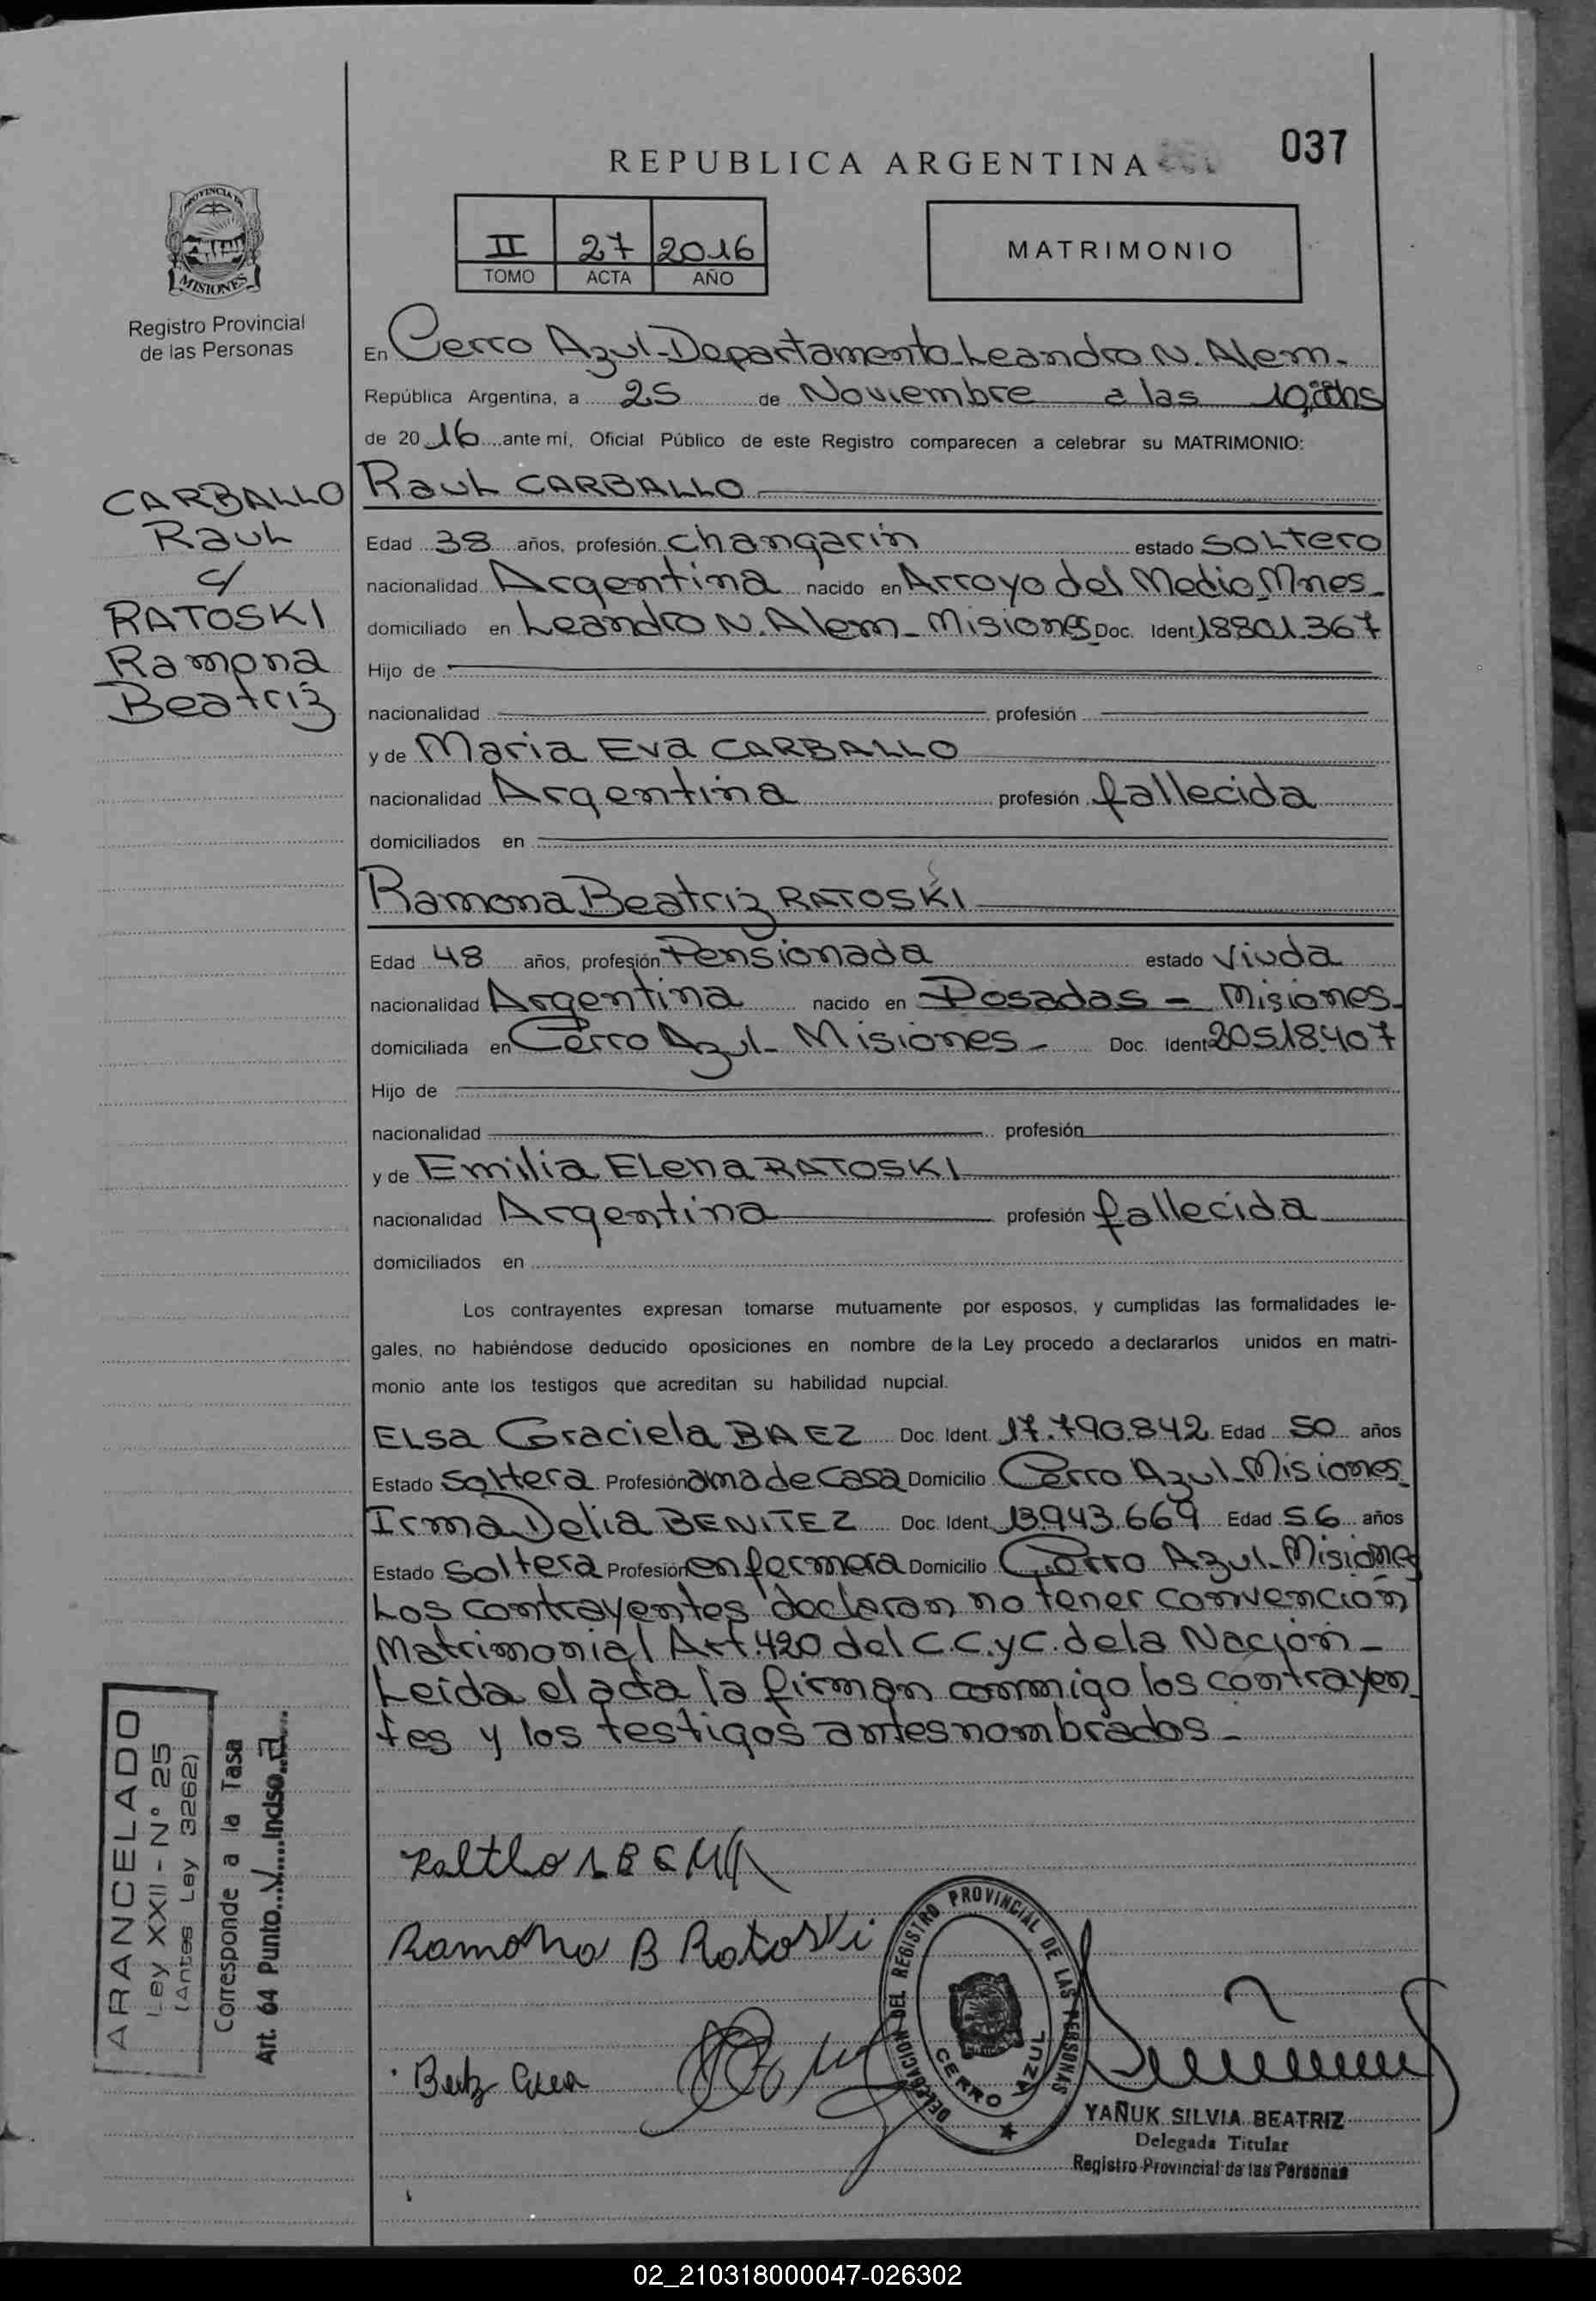 REPUBLICA ARGENTINA
037
PROVINCIA DE
MISIONES
Registro Provincial
de las Personas
II 27 2016
TOMO ACTA AÑO
MATRIMONIO
En Cerro Azul-Departamento-Leandro N. Alem-
República Argentina, a 25 de Noviembre a las 10,00hs
de 20 16 ante mí, Oficial Público de este Registro comparecen a celebrar su MATRIMONIO:
CARBALLO
Raul
c/
RATOSKI
Ramona
Beatriz
Raul CARBALLO
Edad 38 años, profesión Changarin estado Soltero
nacionalidad Argentina nacido en Arroyo del Medio-Mnes-
domiciliado en Leandro N. Alem- Misiones Doc. Ident 18801.367
Hijo de
nacionalidad profesión
y de Maria Eva CARBALLO
nacionalidad Argentina profesión fallecida
domiciliados en
Ramona Beatriz RATOSKI
Edad 48 años, profesión Pensionada estado Viuda
nacionalidad Argentina nacido en Posadas - Misiones-
domiciliada en Cerro Azul- Misiones- Doc. Ident 20518.407
Hijo de
nacionalidad profesión
y de Emilia Elena RATOSKI
nacionalidad Argentina profesión fallecida
domiciliados en
Los contrayentes expresan tomarse mutuamente por esposos, y cumplidas las formalidades le-
gales, no habiéndose deducido oposiciones en nombre de la Ley procedo a declararlos unidos en matri-
monio ante los testigos que acreditan su habilidad nupcial.
Elsa Graciela BAEZ Doc. Ident. 17.790.842 Edad 50 años
Estado Soltera Profesión ama de Casa Domicilio Cerro Azul-Misiones
Irma Delia BENITEZ Doc. Ident. 13.943.669 Edad 56 años
Estado Soltera Profesión enfermera Domicilio Cerro Azul-Misiones
Los contrayentes declaran no tener convención
Matrimonial Art.420 del C.C.yC. de la Nación-
Leida el acta la firman conmigo los contrayen-
tes y los testigos antes nombrados-
ARANCELADO
Ley XXII - N° 25
(Antes Ley 3262)
Corresponde a la Tasa
Art. 64 Punto V Inciso a
Ramona B Ratoski
DELEGACION DEL REGISTRO PROVINCIAL DE LAS PERSONAS
CERRO AZUL
YAÑUK SILVIA BEATRIZ
Delegada Titular
Registro Provincial de las Personas
02_210318000047-026302